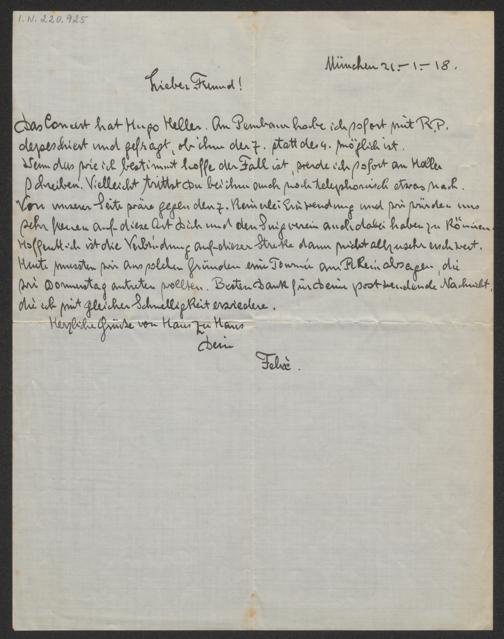 I.N. 220.925
München 21.-1.-18.
Lieber Freund!
Das Concert hat Hugo Heller. An Pembaur habe ich sofort mit R.P.
depeschiert und gefragt, ob ihm der 7. statt des 4. möglich ist.
Wenn das wie ich bestimmt hoffe der Fall ist, werde ich sofort an Heller
schreiben. Vielleicht trittst Du bei ihm auch noch telephonisch etwas nach.
Von unserer Seite wäre gegen den 7. keinerlei Einwendung und wir würden uns
sehr freuen auf diese Art Dich und den Singverein auch dabei haben zu können.
Hoffentlich ist die Verbindung auf dieser Strecke dann nicht allzusehr erschwert.
Heute mussten wir aus solchen Gründen eine Tournée am Rhein absagen, die
wir Donnerstag antreten wollten. Besten Dank für Deine postwendende Nachricht,
die ich mit gleicher Schnelligkeit erwiedere.
Herzliche Grüsse von Haus zu Haus
Dein
Felix.